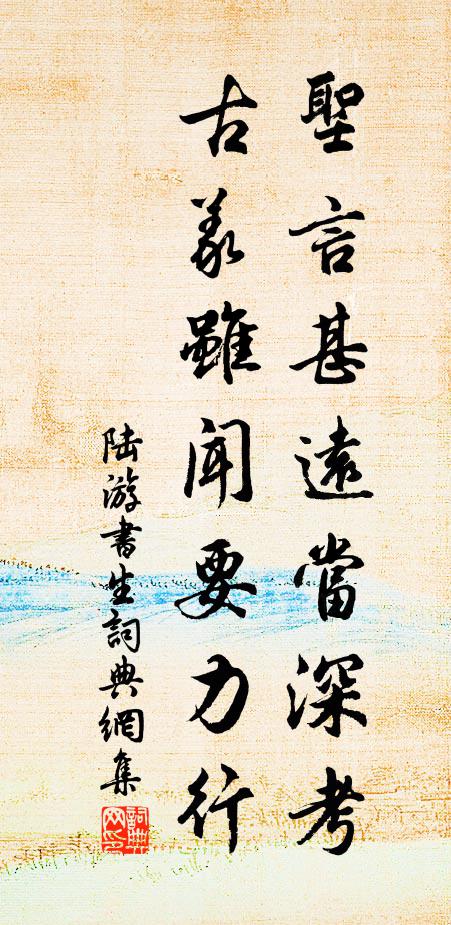 聖言甚遠當深考
古義雖聞要力行
陆游書生詞典網集
詞典网印